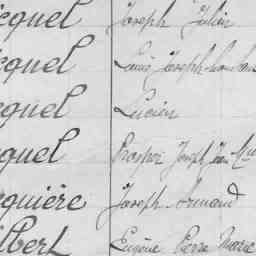 cquel Joseph Julien
cquel Louis Joseph
cquel Lucien
cquel Prosper Joseph Jean
quière Joseph Armand
lbert Eugène Pierre Marie